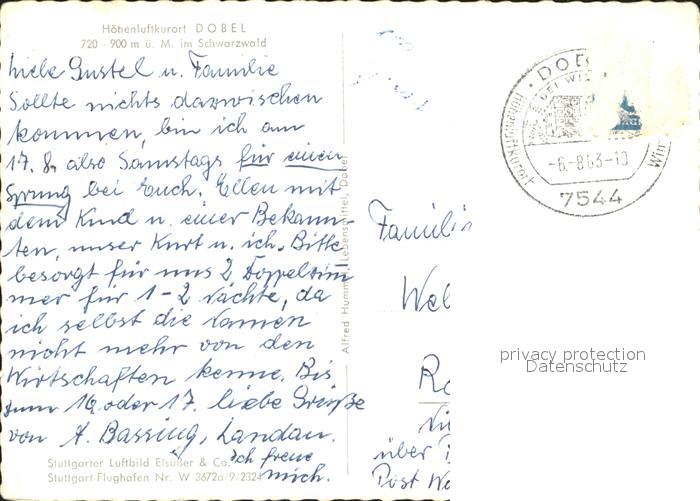 Höhenluftkurort DOBEL
720 - 900 m ü. M. im Schwarzwald
Liebe Gustel u. Familie
Sollte nichts dazwischen
kommen, bin ich am
17. 8. also Samstags für einen
Sprung bei Euch. Ellen mit
dem Kind u. einer Bekann-
ten, unser Kurt u. ich. Bitte
besorgt für uns 2 Doppelzim
mer für 1-2 Nächte, da
ich selbst die Namen
nicht mehr von den
Wirtschaften kenne. Bis
zum 16 oder 17. liebe Grüße
von A. Bassing, Landau.
Ich freue
mich.
Stuttgarter Luftbild Elsäßer & Co.
Stuttgart-Flughafen Nr. W 3672a/9/2324
Alfred Hummel, Lebensmittel, Dobel
DOB
BEI WI
Höhenluftkurort
-6.-8.63-10
Win
7544
Famili
Wel
über
Post
privacy protection
Datenschutz